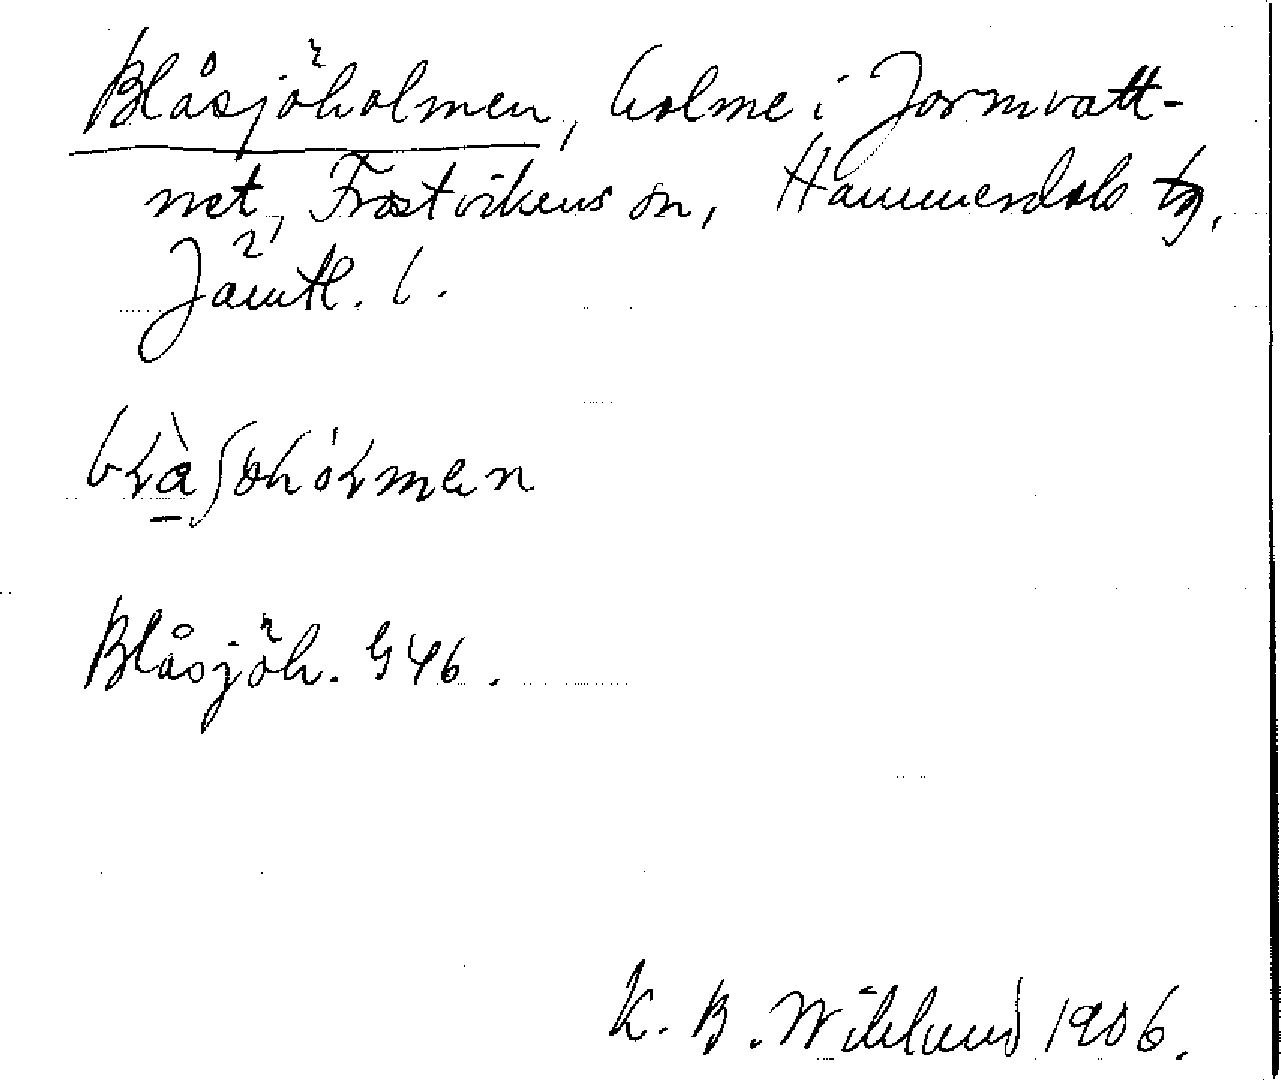 Blåsjöholmen, holme i Jormvatt-
net, Frostvikens sn, Hammerdals tg,
Jämtl. l.
Blåsjöh. G 46.
K. B. Wiklund 1906.